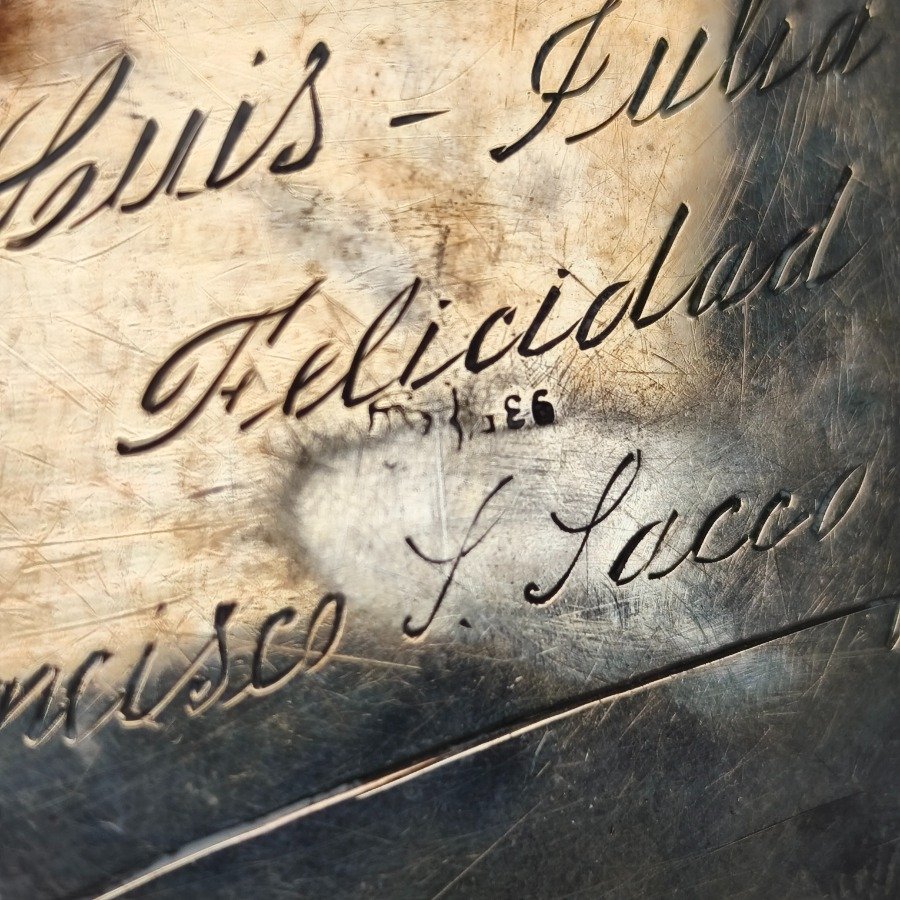 Luis - Julia
Felicidad
ncisco S. Sacco